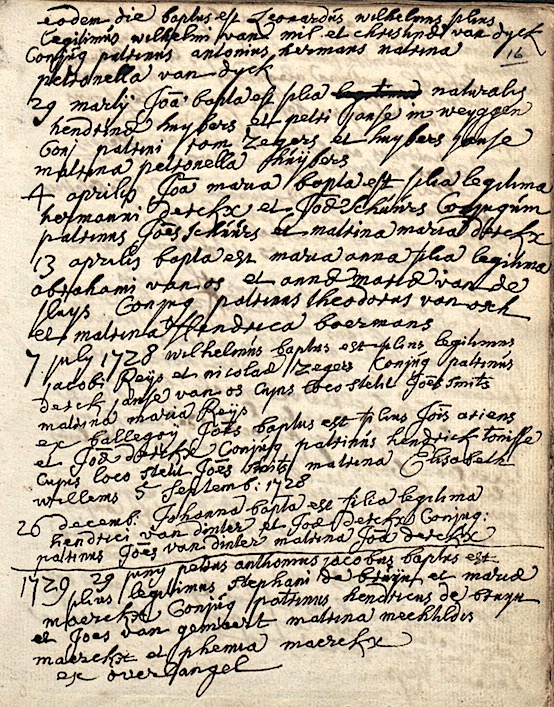 eodem die baptus est Leonardus wilhelmus filius
Legitimus wilhelmi van mil et christinae van dyck
Conjug patrinus antonius hermans matrina
petronella van dyck
16
29 martij Joa bapta est filia naturalis
hendrinae huybers et petri Janse in weyggen
Conj patrini rom Zegers et huybers Janse
matrina petronella huijbers
4 aprilis Joa maria bapta est filia legitima
hermanni Derckx et Joae Schuirs Conjugum
patrinus Joes Schuirs et matrina maria derckx
13 aprilis bapta est maria anna filia legitima
abrahami van os et annae mariae van de
sluys Conjug patrinus theodorus van osch
et matrina Hendrica boermans
7 july 1728 wilhelmus baptus est filius legitimus
Jacobi Reijs et nicolae Zegers Conjug patrinus
derck Janse van os cujus loco stetit Joes smits
matrina maria Reijs
ex ballegoÿ Joes baptus est filius Jois ariens
et Joae derckx Conjug patrinus hendrick tonisse
Cujus loco stetit Joes smits matrina Elisabeth
willems 5 Septemb: 1728
26 decemb. Johanna bapta est filia legitima
hendrici van dinter et Joae Derckx Conjug:
patrinus Joes van dinter matrina Joa derckx
1729 29 juny petrus anthonius jacobus baptus est
filius legitimus stephani de bruyn et mariae
maerckx Conjug patrinus hendricus de bruyn
et Joes van gemaert matrina mechtildis
maerckx et phemia maerckx
ex over Langel